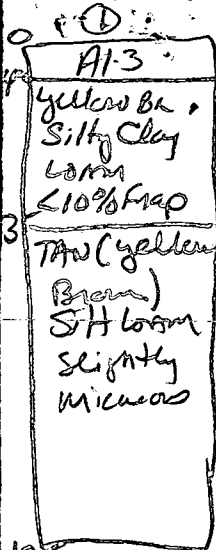 0 1
A1-3
Yellow Br.
Silty Clay
Loam
<10% Frag
3
TAN (yellow
Brown)
Silt Loam
Slightly
Micaceous